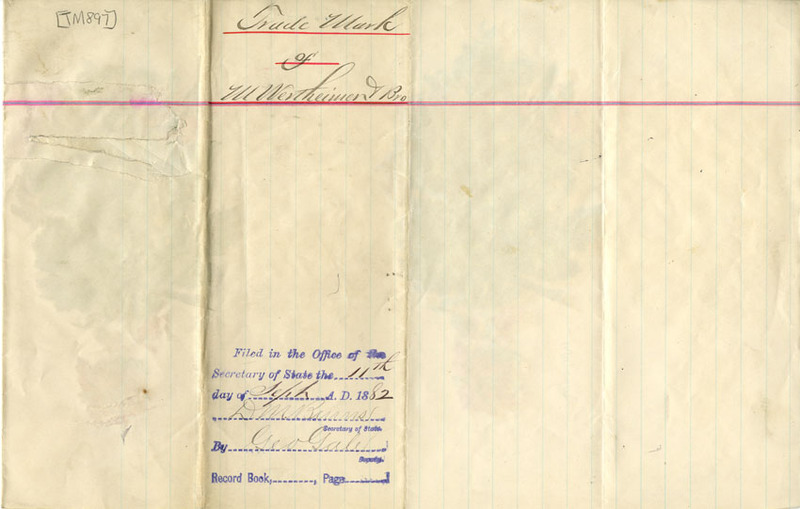 [TM897]
Trade Mark
of
M Wertheimer & Bro
Filed in the Office of the
Secretary of State the 11th
day of Sept A. D. 1882
D M Burns
Secretary of State.
By Geo
Deputy.
Record Book, , Page